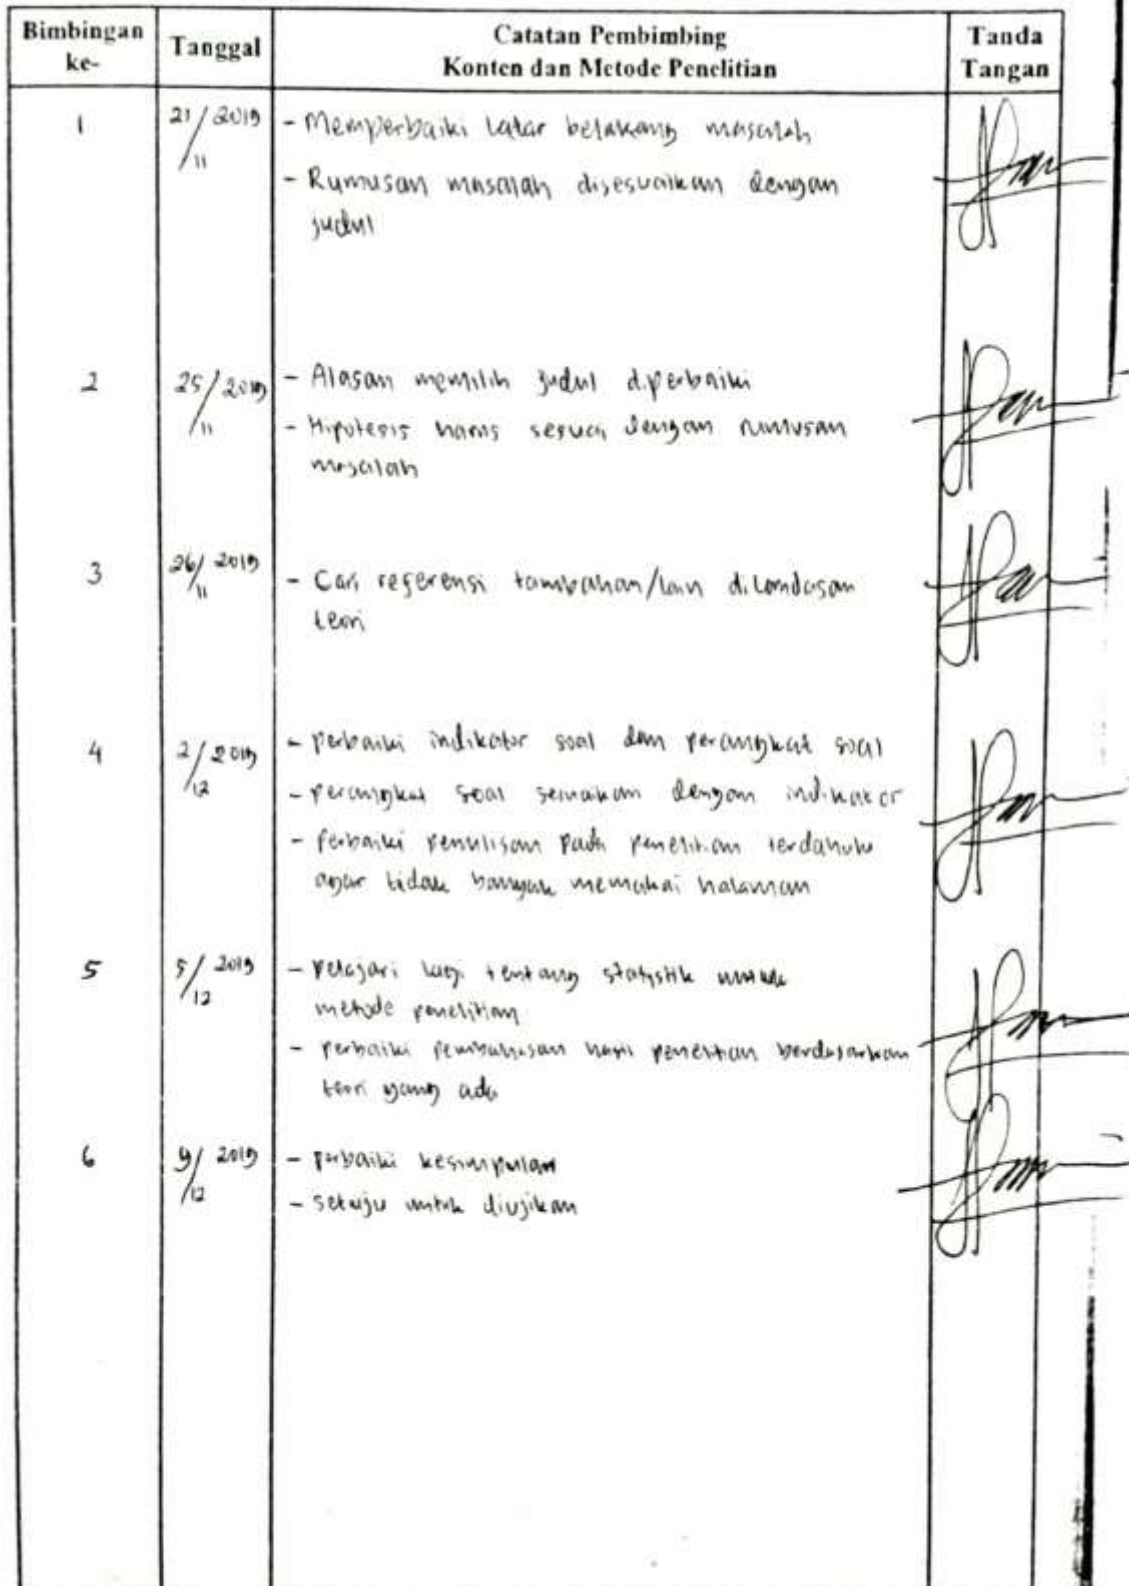 Bimbingan ke-
Tanggal
Catatan Pembimbing
Konten dan Metode Penelitian
Tanda Tangan
1
21/11 2019
- Memperbaiki latar belakang masalah
- Rumusan masalah disesuaikan dengan
judul
2
25/11 2019
- Alasan memilih judul diperbaiki
- Hipotesis harus sesuai dengan rumusan
masalah
3
26/11 2019
- Cari referensi tambahan/lain dilandasan
teori
4
2/12 2019
- perbaiki indikator soal dan perangkat soal
- perangkat soal samakan dengan indikator
- perbaiki penulisan pada penelitian terdahulu
agar tidak banyak memakai halaman
5
5/12 2019
- pelajari lagi tentang statistik untuk
metode penelitian
- perbaiki pembahasan hasil penelitian berdasarkan
teori yang ada
6
9/12 2019
- perbaiki kesimpulan
- setuju untuk diujikan